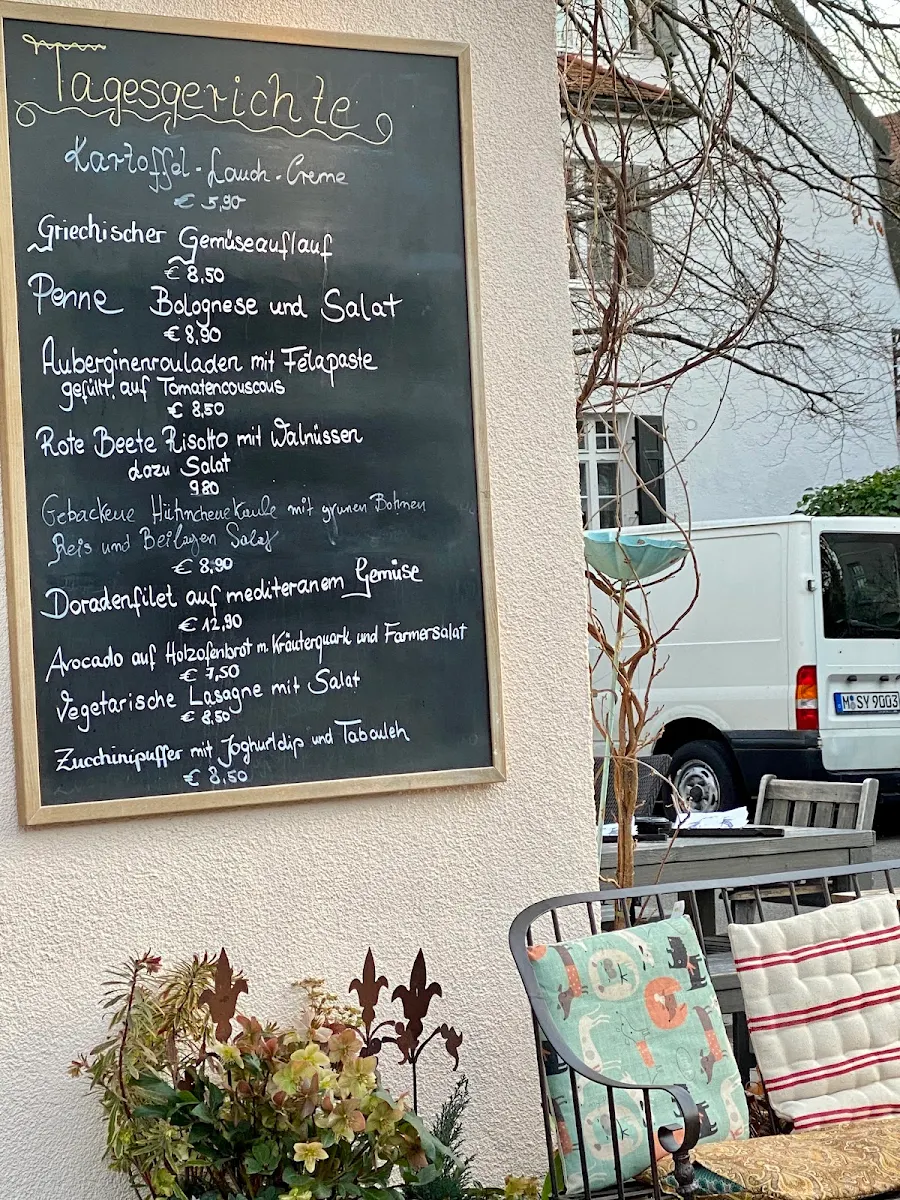 Tagesgerichte
Kartoffel-Lauch-Creme
€ 5,90
Griechischer Gemüseauflauf
€ 8,50
Penne Bolognese und Salat
€ 8,90
Auberginenrouladen mit Fetapaste
gefüllt, auf Tomatencouscous
€ 8,50
Rote Beete Risotto mit Walnüssen
dazu Salat
9,80
Gebackene Hühnchenekeule mit grünen Bohnen
Reis und Beilagen Salat
€ 8,90
Doradenfilet auf mediteranem Gemüse
€ 12,90
Avocado auf Holzofenbrot m. Kräuterquark und Farmersalat
€ 7,50
Vegetarische Lasagne mit Salat
€ 8,50
Zucchinipuffer mit Joghurtdip und Tabouleh
€ 8,50
M SY 9003